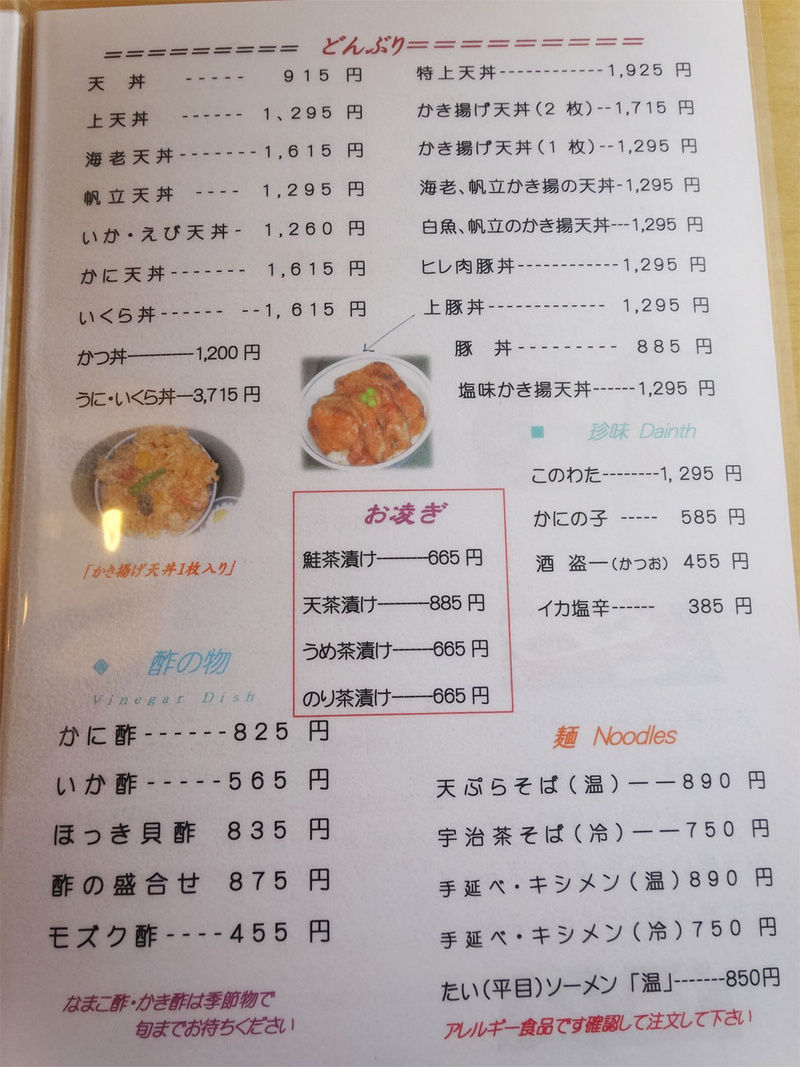 ========= どんぶり==========
天 丼 ----- 915 円
上天丼 ------ 1、295 円
海老天丼-------1,615 円
帆立天丼 ---- 1,295 円
いか・えび天丼- 1,260 円
かに天丼------- 1,615 円
いくら丼------ --1,615 円
かつ丼----------1,200 円
うに・いくら丼---3,715 円
特上天丼------------1,925 円
かき揚げ天丼(2 枚)--1,715 円
かき揚げ天丼(1 枚)--1,295 円
海老、帆立かき揚の天丼-1,295 円
白魚、帆立のかき揚天丼---1,295 円
ヒレ肉豚丼------------1,295 円
上豚丼------------- 1,295 円
豚 丼--------- 885 円
塩味かき揚天丼------1,295 円
「かき揚げ天丼1枚入り」
お凌ぎ
鮭茶漬け--------665 円
天茶漬け--------885 円
うめ茶漬け------665 円
のり茶漬け------665 円
■ 珍味 Dainth
このわた--------1,295 円
かにの子 ----- 585 円
酒 盗―(かつお) 455 円
イカ塩辛------ 385 円
◆ 酢の物
Vinegar Dish
かに酢------825 円
いか酢-----565 円
ほっき貝酢 835 円
酢の盛合せ 875 円
モズク酢----455 円
なまこ酢・かき酢は季節物で
旬までお待ちください
麺 Noodles
天ぷらそば(温)――890 円
宇治茶そば(冷)――750 円
手延べ・キシメン(温)890 円
手延べ・キシメン(冷)750 円
たい(平目)ソーメン「温」-------850円
アレルギー食品です確認して注文して下さい